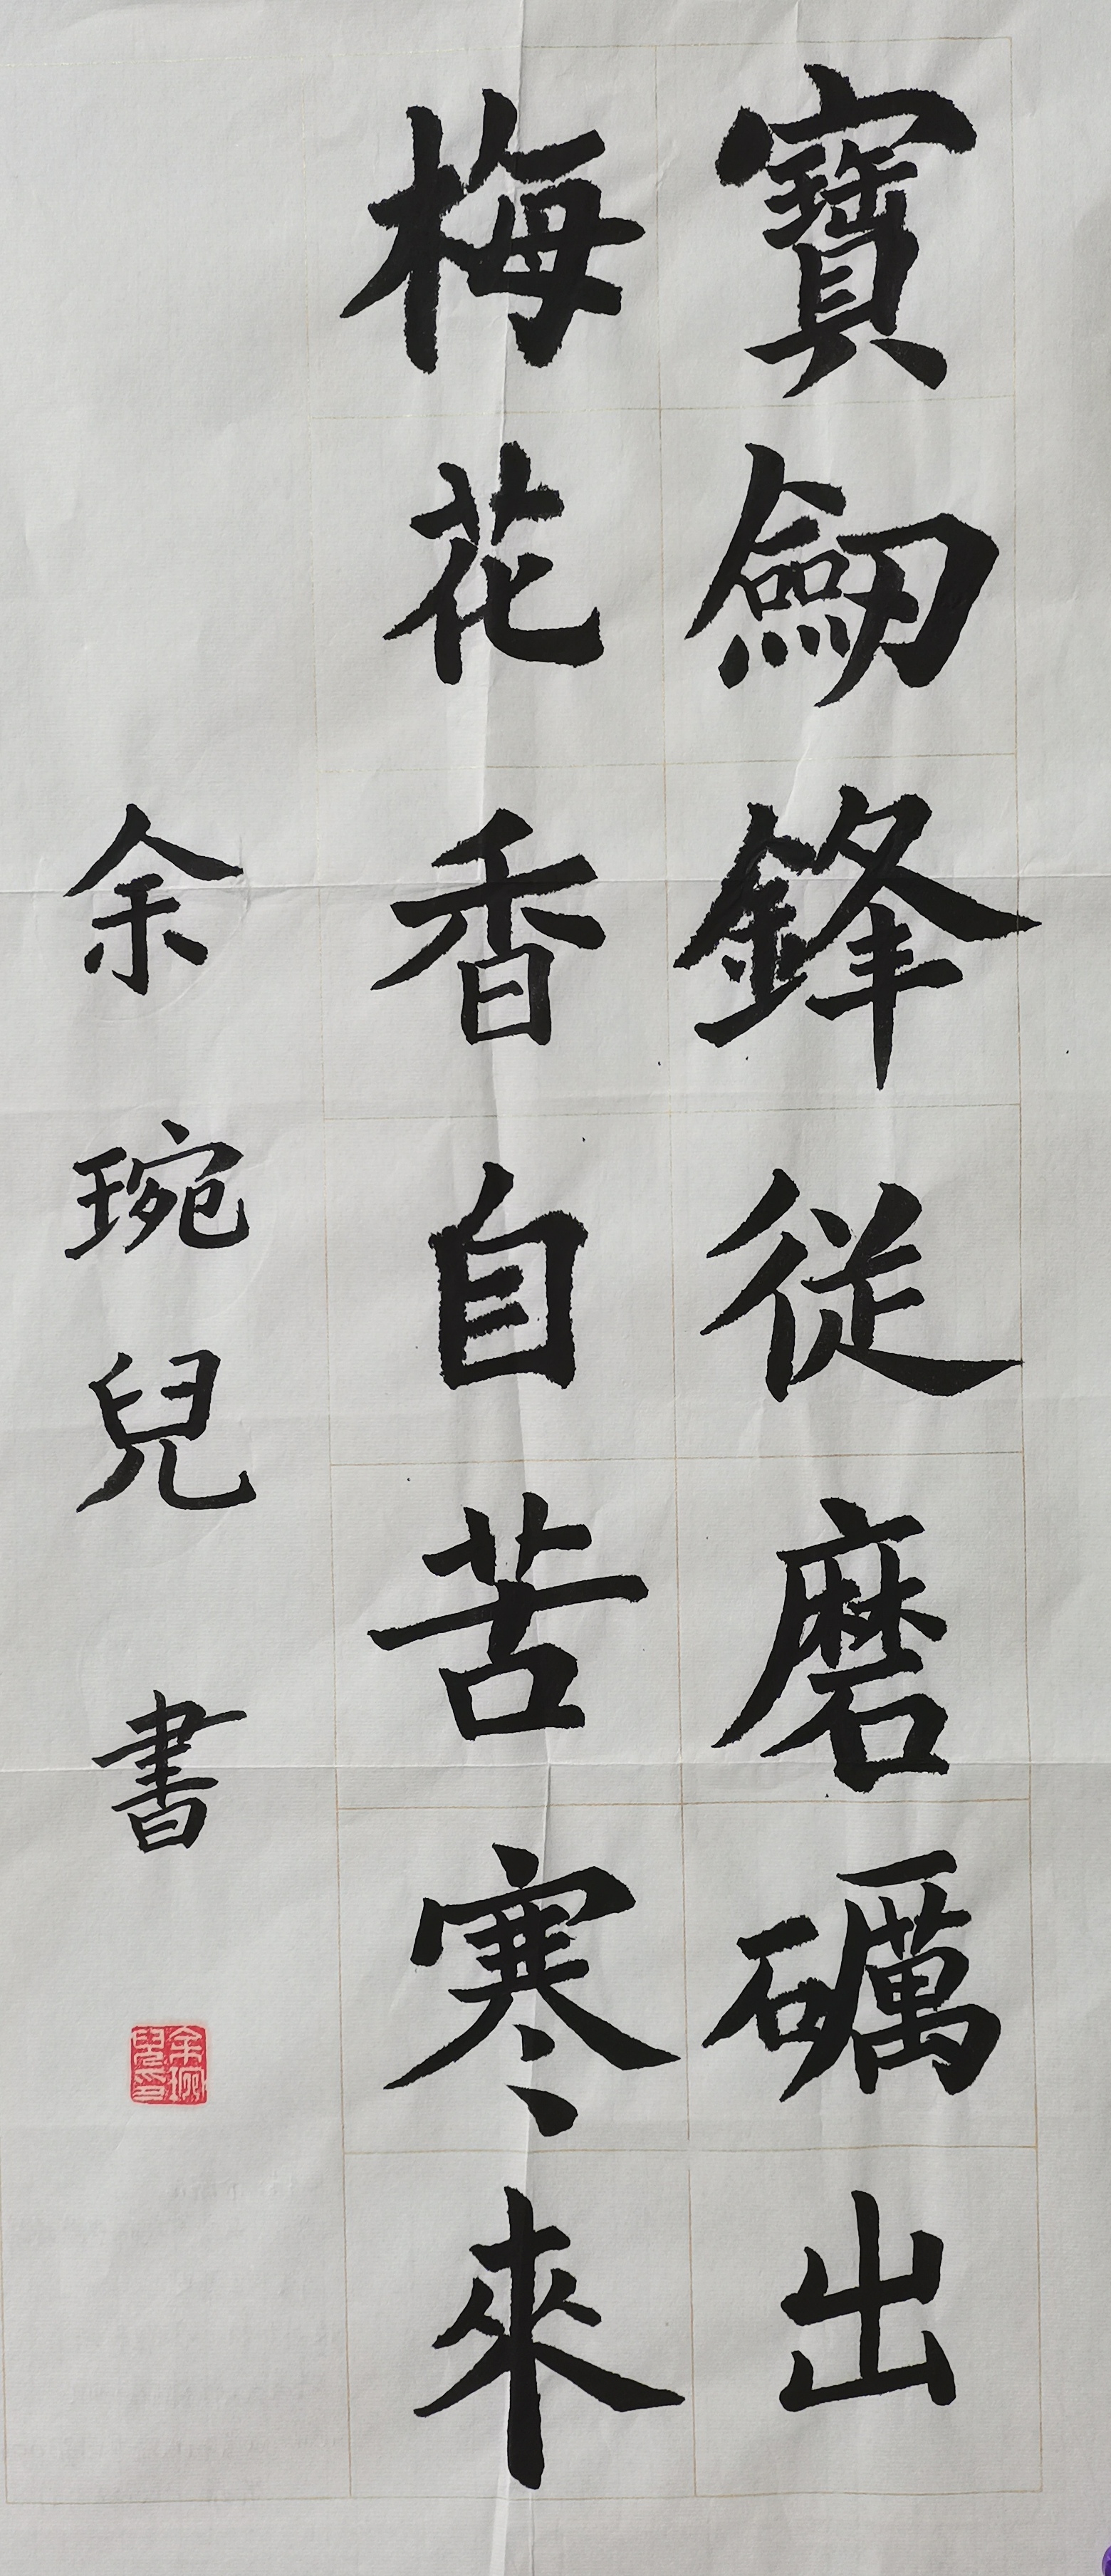 寶劒鋒従磨礪出
梅花香自苦寒來
余琬兒書
余琬兒印